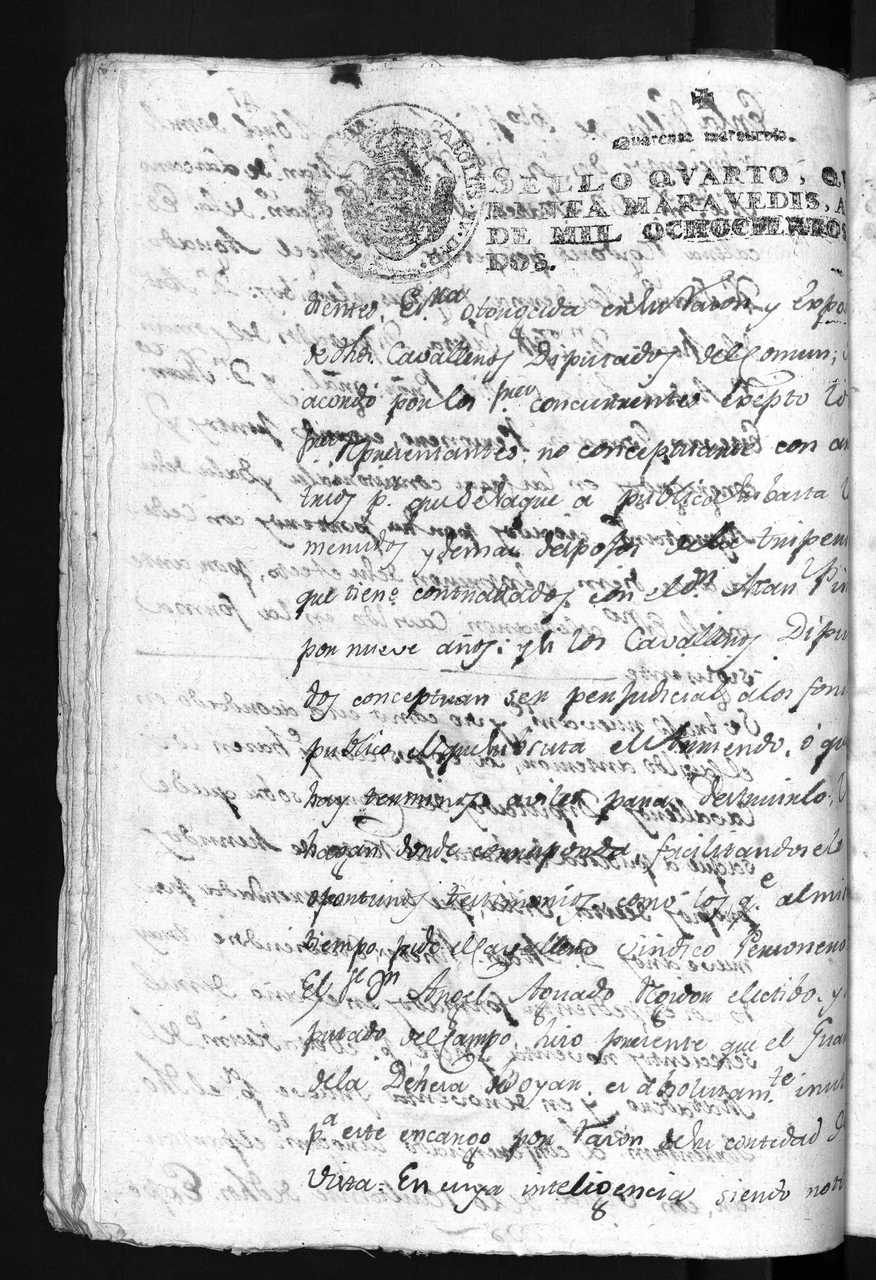 Quarenta maravedis.
SELLO QVARTO, QV
RENTA MARAVEDIS, A
DE MIL OCHOCIENTOS
DOS.
dientes, Esc.ra otorgada en su razon y expo
de dhos. Cavalleros Diputados del Comun;
acordó por los s.res concurrentes exepto lo
s.res Representantes no conceptuarse con ar
trios p.a que se saque a publica subasta
menudos y demas despojos de la
que tiene contratados con el D.n
por nueve años; y si los Cavalleros Dipu
dos conceptuan ser perjudicial a los fon
publico el que subsista el Arriendo, ó q
hay terminos para destruirlo,
hagan donde corresponda facilitandoseles
oportunos testimonios como los q.e al mi
tiempo pide el Cavallero Sindico Personero
El S.r D.n Angel Aguado Rejidor electibo, y
putado del Campo, hizo presente que el Gua
de la Dehesa es absolutam.te inu
p.a este encargo por razon de su cortedad de
vista: En cuya inteligencia, siendo noto